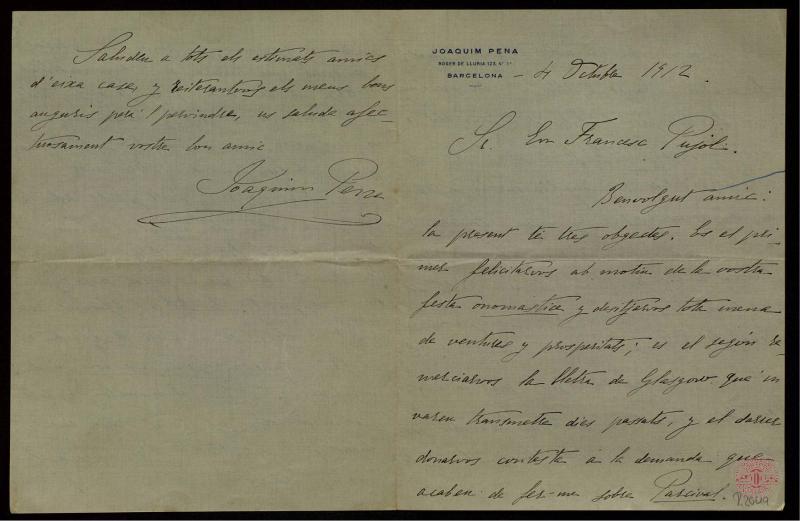 JOAQUIM PENA
ROGER DE LLURIA 123, 4t 1a
BARCELONA - 4 Octubre 1912.
Sr. En Francesc Pujol.
Benvolgut amic:
la present té tres objectes. Es el pri-
mer felicitarvos ab motiu de la vostra
festa onomastica y desitjarvos tota mena
de ventures y prosperitats; es el segón re-
merciarvos la lletra de Glasgow que'm
varen transmetre dies passats, y el darrer
donarvos contesta á la demanda que
acaben de fer-me sobre Parcival.
Saludeu a tots els estimats amics
d'eixa casa, y reiterantvos els meus bons
auguris pera'l pervindre, us saluda afec-
tuosament vostre bon amic
Joaquim Pena